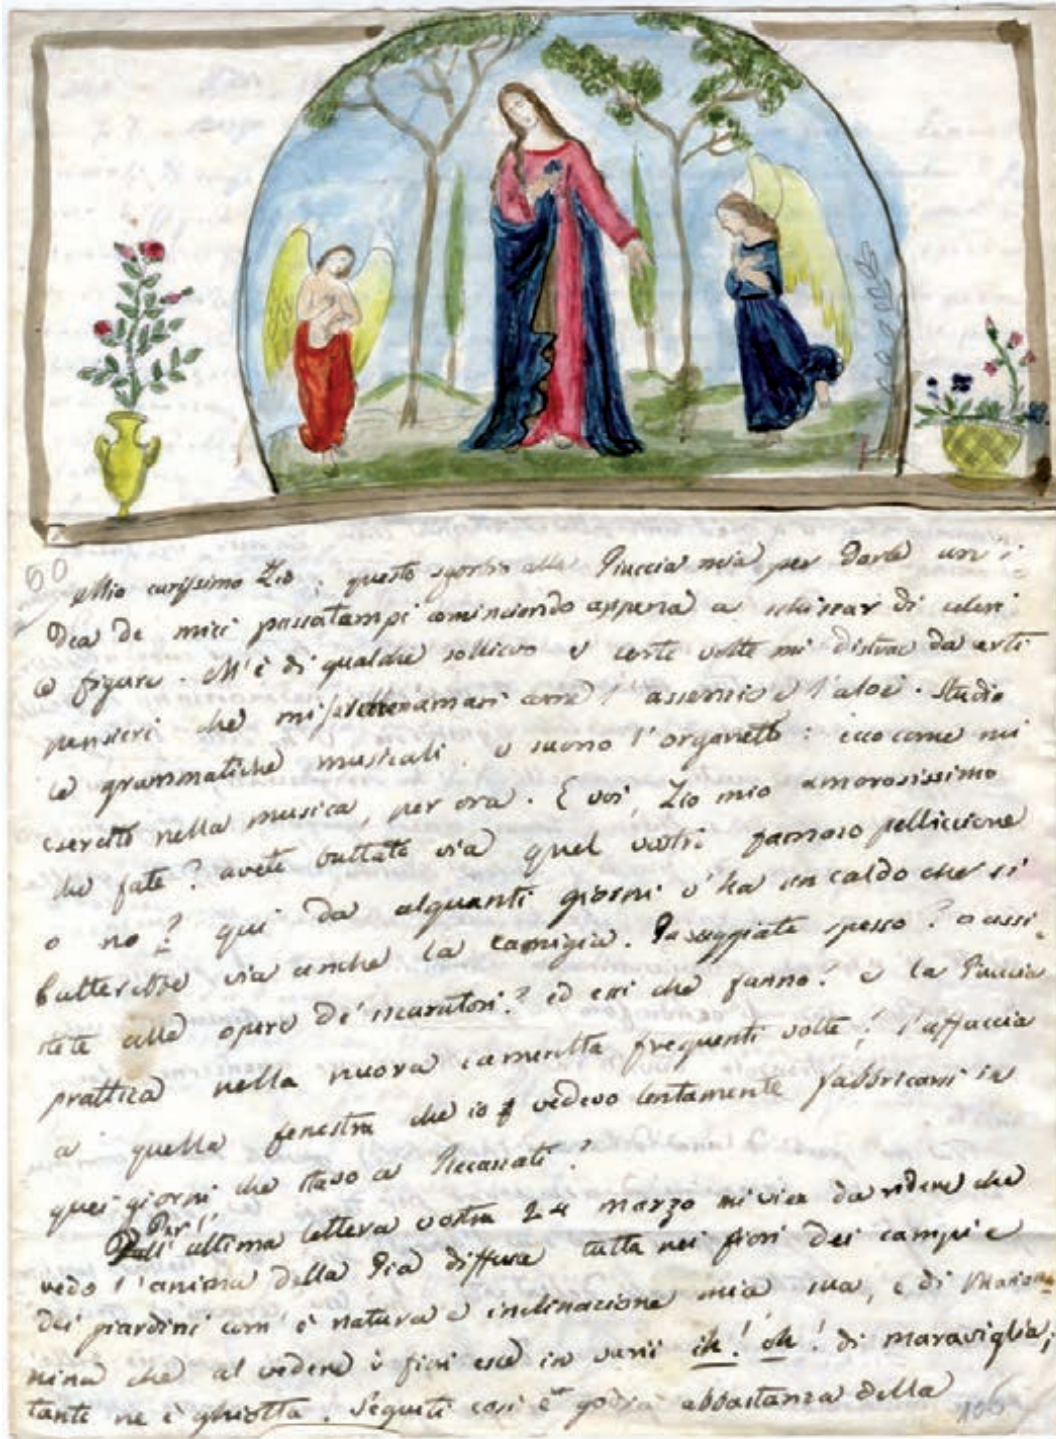 60
Mio carissimo Zio; questo sgorbio alla Piuccia mia per darle un i
dea de miei passatempi cominciando appena a schizzar di colori
e figure. M'è di qualche sollievo e certe volte mi distrae da certi
pensieri che mi amari come l'assenzio e l'aloè. Studio
le grammatiche musicali e suono l'organetto: ecco come mi
esercito nella musica, per ora. E voi, Zio mio amorosissimo
che fate? avete buttato via quel vostro famoso pelliccione
o no? qui da alquanti giorni v'ha un caldo che si
butterebbe via anche la camigia. Passeggiate spesso? o assi-
stete alle opere de' muratori? ed essi che fanno? e la Piuccia
prattica nella nuova cameretta frequenti volte? s'affaccia
a quella fenestra che io vedevo lentamente fabbricarsi in
quei giorni che stavo a Recanati?
Per l'ultima lettera vostra 24 marzo mi vien da ridere che
vedo l'anima della Pia diffusa tutta nei fiori dei campi e
dei giardini com' è natura e inclinazione mia sua, e di Marian-
nina che al vedere i fiori esce in varii ih! oh! di maraviglia;
tanto ne è ghiotta. Seguiti così e godrà abbastanza della
106